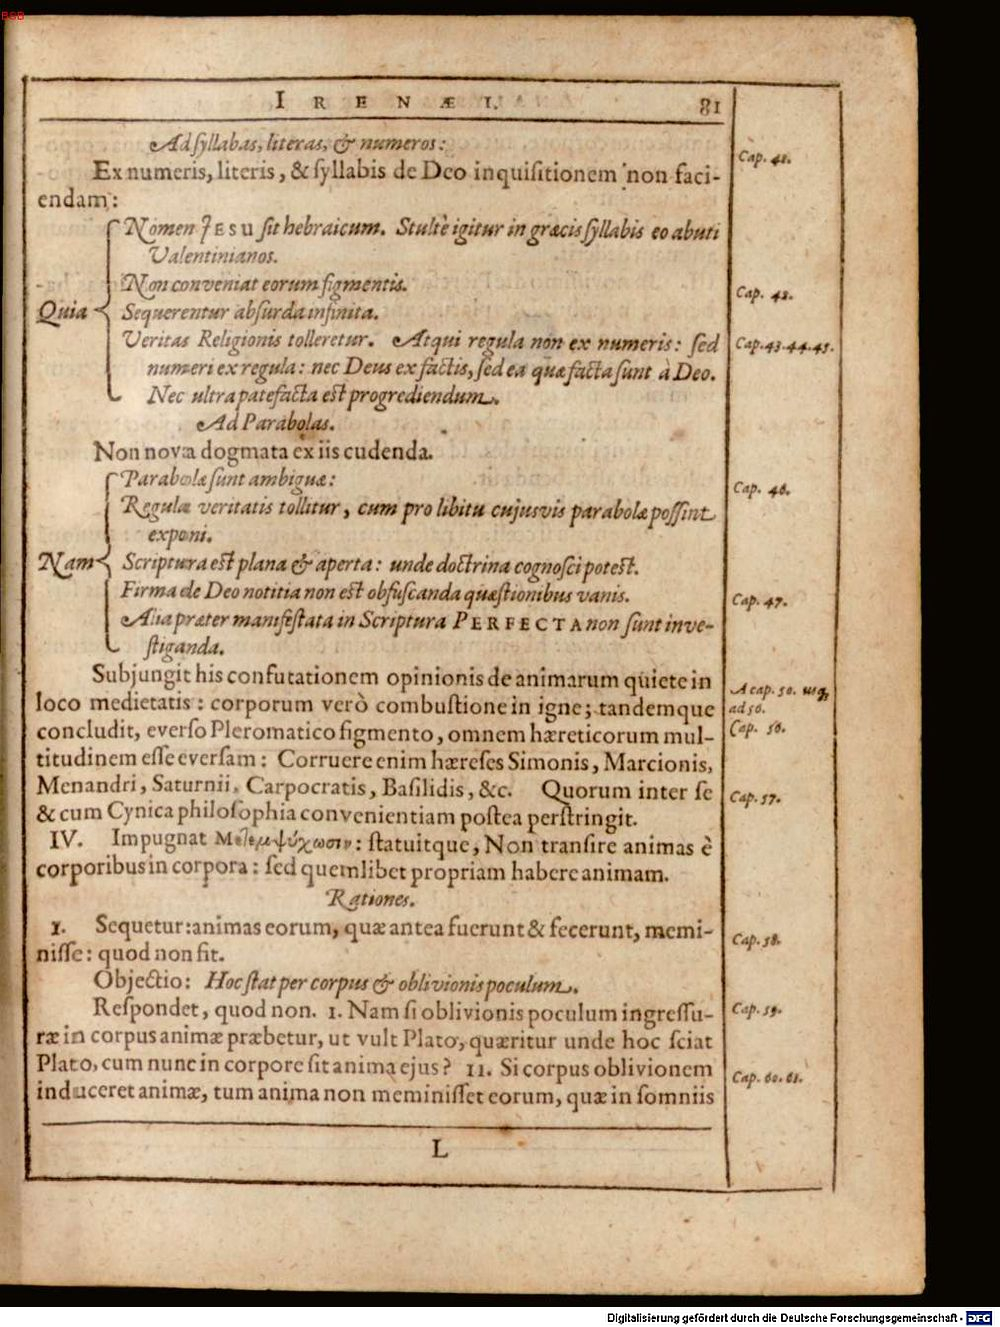 BSB
IRENÆI. 81
Ad syllabas, literas, & numeros:
Ex numeris, literis, & syllabis de Deo inquisitionem non faci-
endam:
Nomen JESU sit hebraicum. Stultè igitur in græcis syllabis eo abuti
Valentinianos.
Non conveniat eorum figmentis.
Quia Sequerentur absurda infinita.
Veritas Religionis tolleretur. Atqui regula non ex numeris: sed
numeri ex regula: nec Deus ex factis, sed ea quæ facta sunt à Deo.
Nec ultra patefacta est progrediendum.
Ad Parabolas.
Non nova dogmata ex iis cudenda.
Parabolæ sunt ambiguæ:
Regula veritatis tollitur, cum pro libitu cujusvis parabolæ possint
exponi.
Nam Scriptura est plana & aperta: unde doctrina cognosci potest.
Firma de Deo notitia non est obfuscanda quæstionibus vanis.
Alia præter manifestata in Scriptura PERFECTA non sunt inve-
stiganda.
Subjungit his confutationem opinionis de animarum quiete in
loco medietatis: corporum verò combustione in igne; tandemque
concludit, everso Pleromatico figmento, omnem hæreticorum mul-
titudinem esse eversam: Corruere enim hæreses Simonis, Marcionis,
Menandri, Saturnii, Carpocratis, Basilidis, &c. Quorum inter se
& cum Cynica philosophia convenientiam postea perstringit.
IV. Impugnat Μετεμψύχωσιν: statuitque, Non transire animas è
corporibus in corpora: sed quemlibet propriam habere animam.
Rationes.
I. Sequetur: animas eorum, quæ antea fuerunt & fecerunt, memi-
nisse: quod non fit.
Objectio: Hoc stat per corpus & oblivionis poculum.
Respondet, quod non. I. Nam si oblivionis poculum ingressu-
ræ in corpus animæ præbetur, ut vult Plato, quæritur unde hoc sciat
Plato, cum nunc in corpore sit anima ejus? II. Si corpus oblivionem
induceret animæ, tum anima non meminisset eorum, quæ in somniis
L
Cap. 41.
Cap. 42.
Cap. 43. 44. 45.
Cap. 46.
Cap. 47.
A cap. 50. usq;
ad 56.
Cap. 56.
Cap. 57.
Cap. 58.
Cap. 59.
Cap. 60. 61.
Digitalisierung gefördert durch die Deutsche Forschungsgemeinschaft - DFG